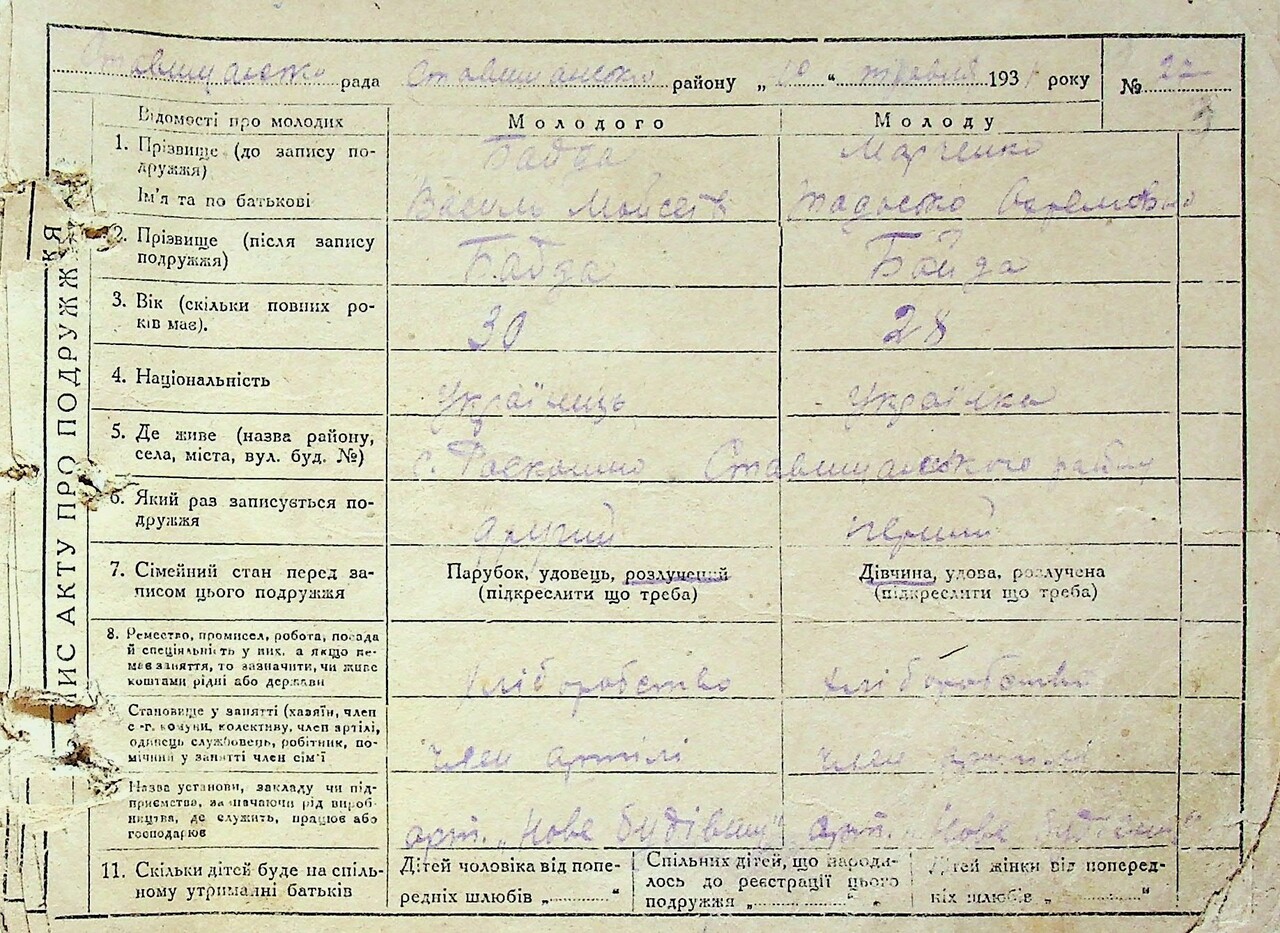 Ставищанська рада Ставищанського району „10“ травня 1931 року № 22
3
ЗАПИС АКТУ ПРО ПОДРУЖЖЯ
Відомості про молодих Молодого Молоду
1. Прізвище (до запису по- Байда Марченко
дружжя)
Ім'я та по батькові Василь Мойсеїв Тодоська Охремовна
2. Прізвище (після запису Байда Байда
подружжя)
3. Вік (скільки повних ро- 30 28
ків має).
4. Національність Українець Українка
5. Де живе (назва району,
села, міста, вул. буд. №) с. Роскошно Ставищанського району
6. Який раз записується по-
дружжя другий перший
7. Сімейний стан перед за- Парубок, удовець, розлучений Дівчина, удова, розлучена
писом цього подружжя (підкреслити що треба) (підкреслити що треба)
8. Ремество, промисел, робота, посада
й спеціяльність у них, а якщо не-
має заняття, то зазначити, чи живе хліборобство хліборобство
коштами рідні або держави
Становище у занятті (хазяїн, член
с.-г. комуни, колективу, член артілі,
одинець службовець, робітник, по- член артілі член артілі
мічний у занятті член сім'ї
Назва установи, закладу чи під-
приємства, зазначаючи рід вироб-
ництва, де служить, працює або
господарює арт. „Нове будівниц" арт. „Нове
11. Скільки дітей буде на спіль- Дітей чоловіка від попе- Спільних дітей, що народи- Дітей жінки від поперед-
ному утриманні батьків редніх шлюбів „ “ лось до реєстрації цього ніх шлюбів „ “
подружжя „ “